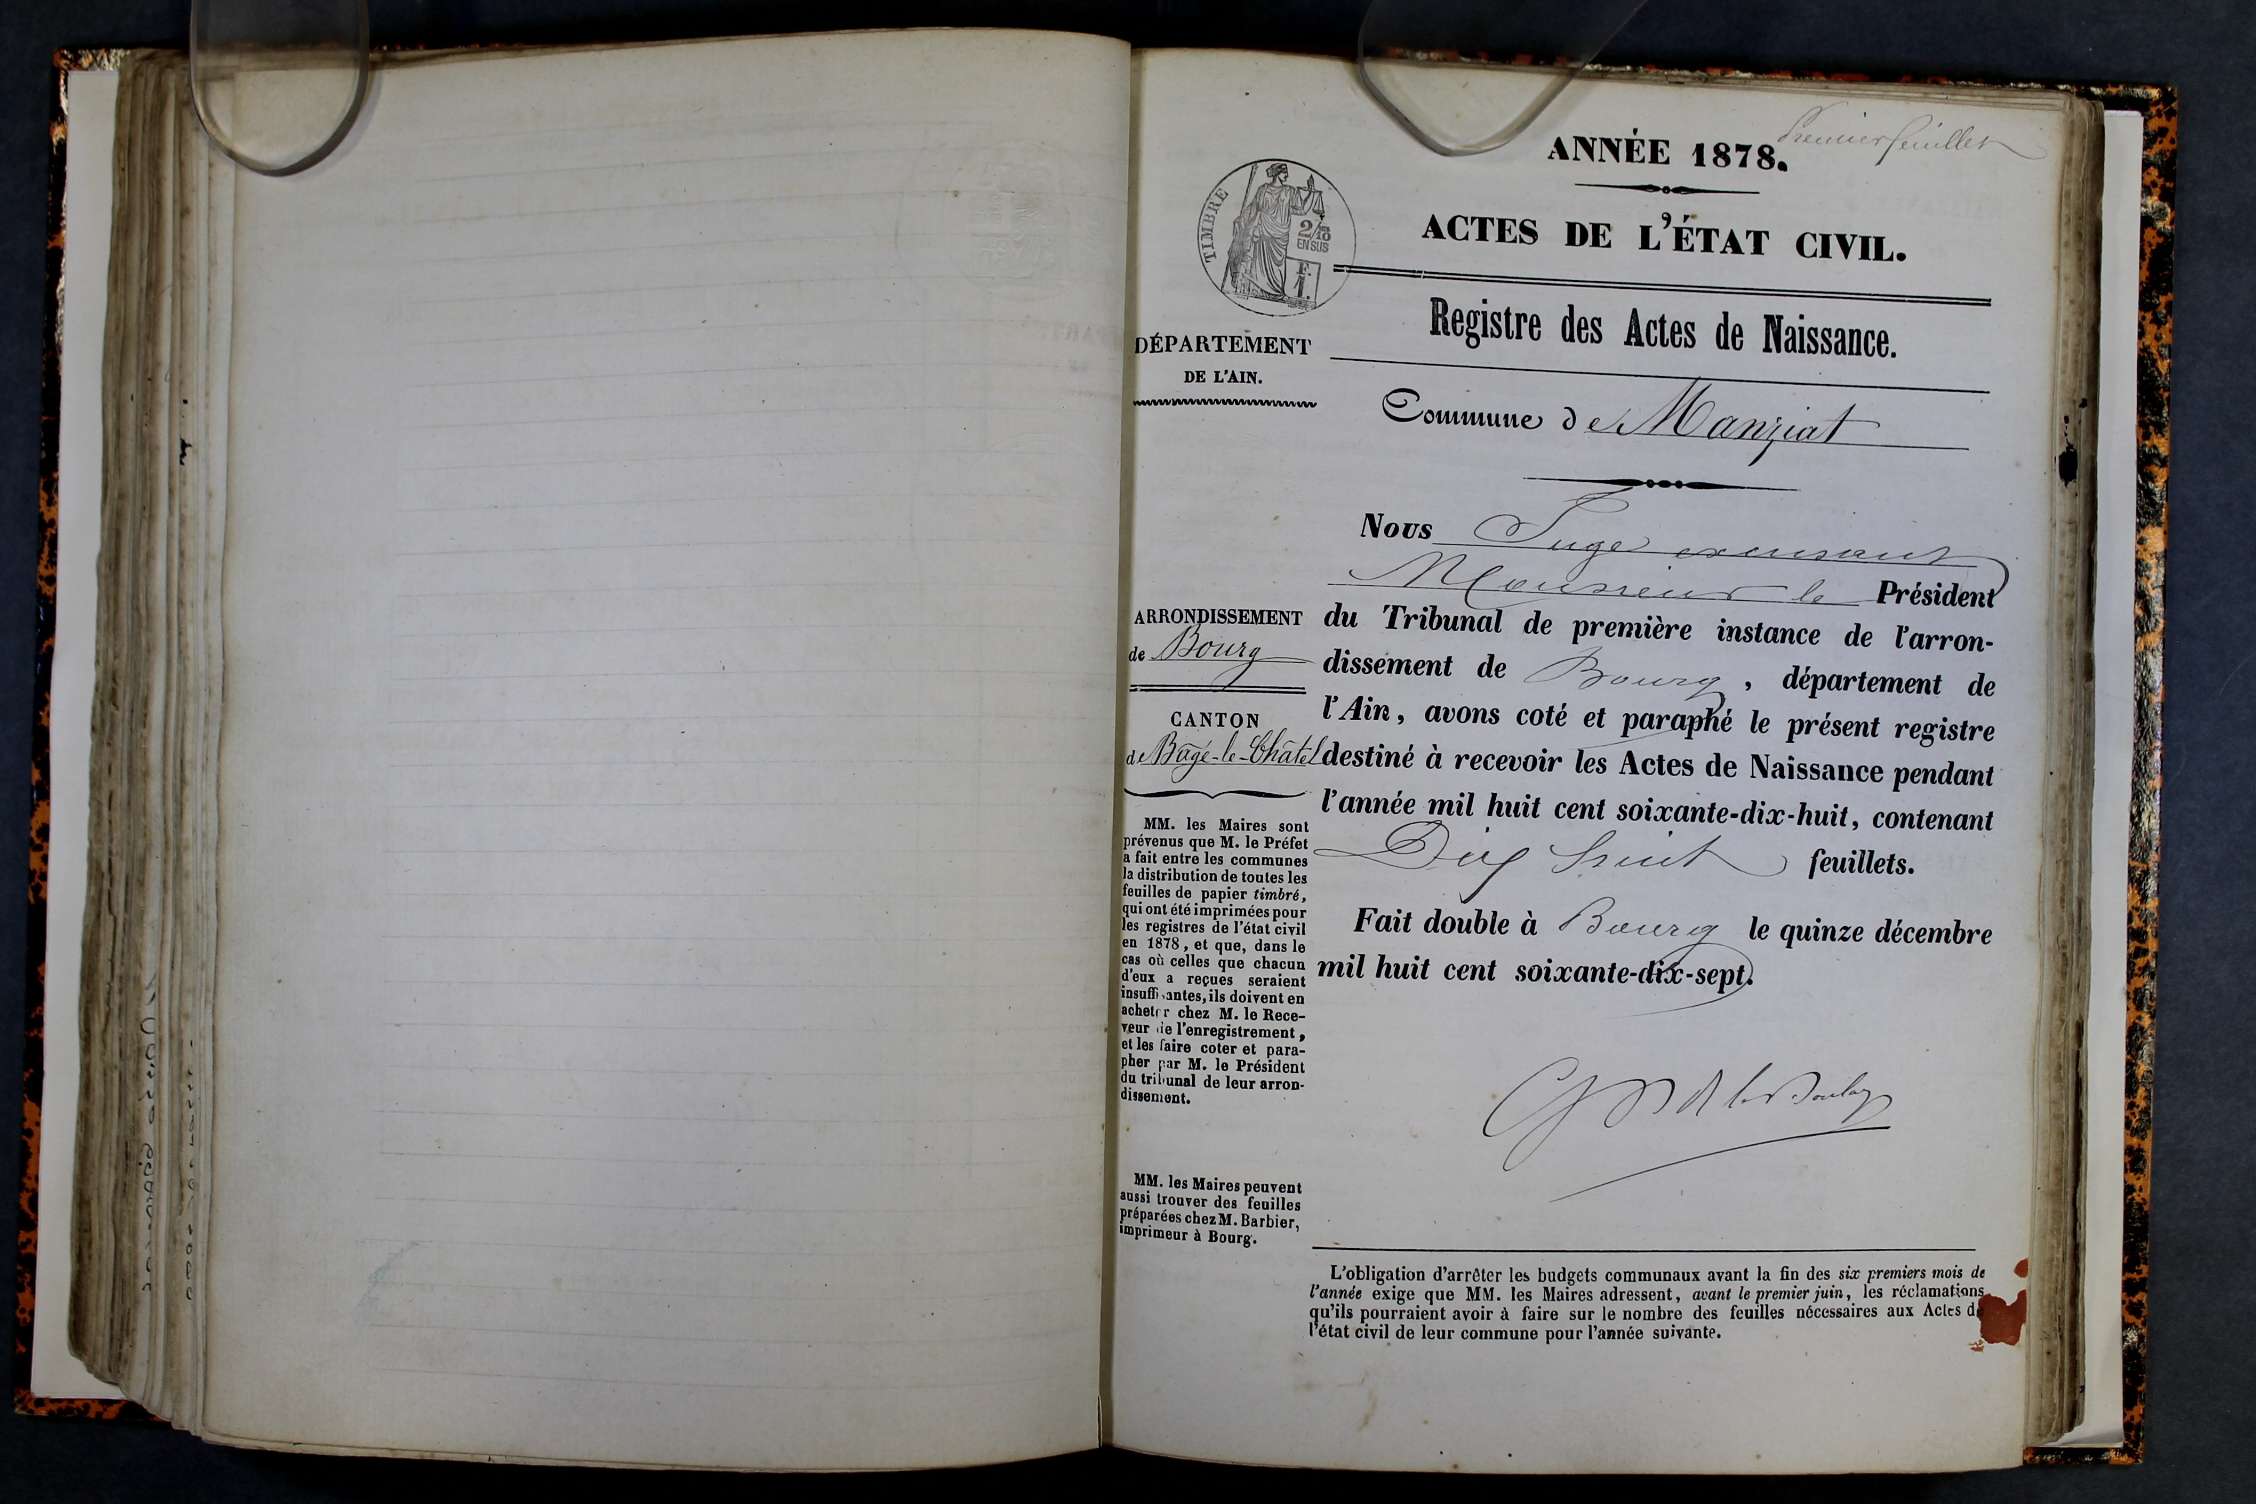 Premier feuillet
ANNÉE 1878.
TIMBRE
2/10
EN SUS
F.
1.
ACTES DE L'ÉTAT CIVIL.
Registre des Actes de Naissance.
DÉPARTEMENT
DE L'AIN.
Commune de Manziat
ARRONDISSEMENT
de Bourg
CANTON
de Bâgé-le-Châtel
MM. les Maires sont
prévenus que M. le Préfet
a fait entre les communes
la distribution de toutes les
feuilles de papier timbré,
qui ont été imprimées pour
les registres de l'état civil
en 1878, et que, dans le
cas où celles que chacun
d'eux a reçues seraient
insuffisantes, ils doivent en
acheter chez M. le Rece-
veur de l'enregistrement,
et les faire coter et para-
pher par M. le Président
du tribunal de leur arron-
dissement.
MM. les Maires peuvent
aussi trouver des feuilles
préparées chez M. Barbier,
imprimeur à Bourg.
Nous Juge
Monsieur le Président
du Tribunal de première instance de l'arron-
dissement de Bourg, département de
l'Ain, avons coté et paraphé le présent registre
destiné à recevoir les Actes de Naissance pendant
l'année mil huit cent soixante-dix-huit, contenant
Dix huit feuillets.
Fait double à Bourg le quinze décembre
mil huit cent soixante-dix-sept.
L'obligation d'arrêter les budgets communaux avant la fin des six premiers mois de
l'année exige que MM. les Maires adressent, avant le premier juin, les réclamations
qu'ils pourraient avoir à faire sur le nombre des feuilles nécessaires aux Actes de
l'état civil de leur commune pour l'année suivante.